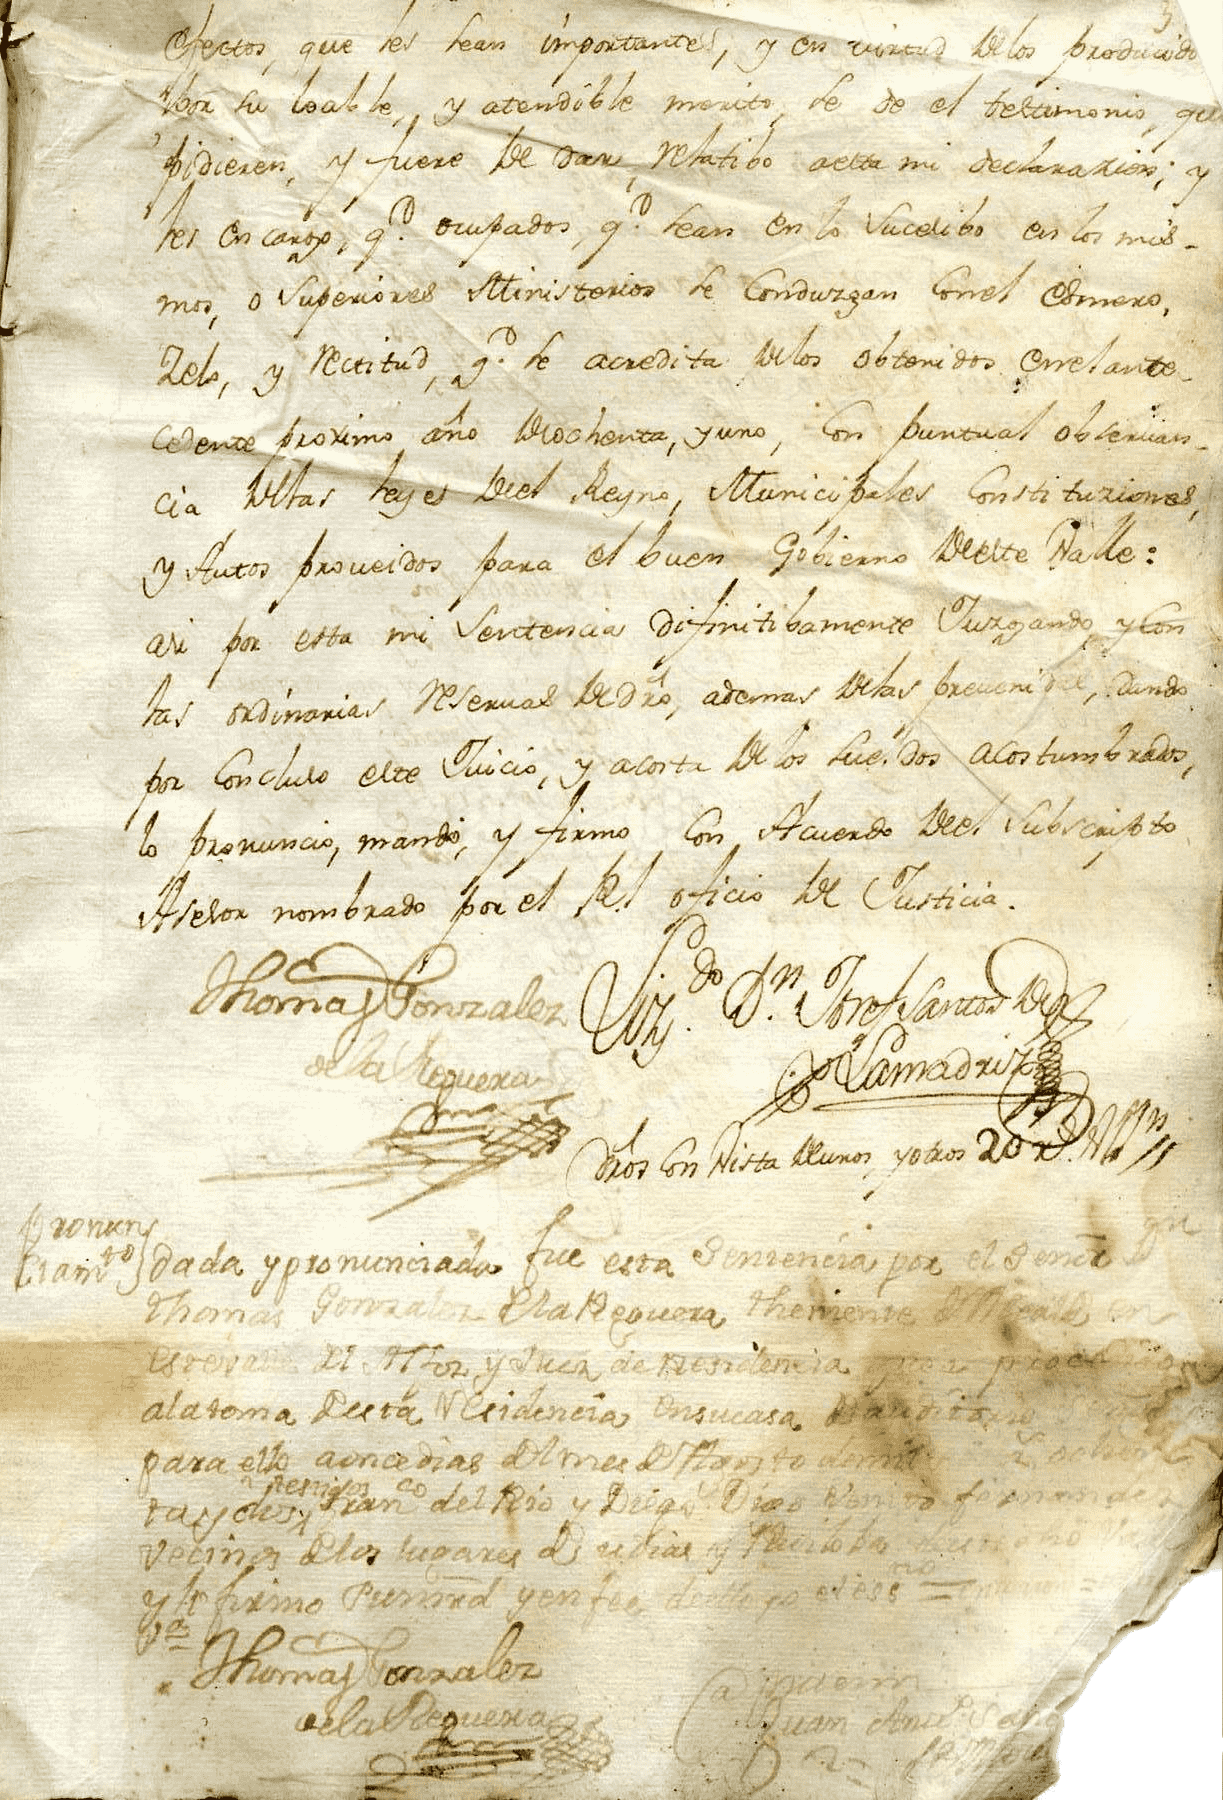 efectos, que les sean importantes, y en virtud de los producido
por su loable, y atendible merito, se de el testimonio, que
pidieren, y fuere de dar, relatibo aesta mi declarazion; y
les encargo, q.e ocupados, q.e sean en lo sucesibo en los mis-
mos, o superiores Ministerios se Conduzgan Conel esmero,
Zelo, y rectitud, q.e se acredita delos obtenidos enelante-
cedente proximo año deochenta, y uno, Con puntual observan-
cia delas leyes del Reyno, Municipales Constituziones,
y Autos proveidos para el buen Gobierno deeste Valle:
asi por esta mi Sentencia difinitibamente Juzgando, y Con
las ordinarias reservas de dro, ademas delas prevenidas, dando
por Concluso este Juicio, y acosta delos sueldos acostumbrados,
lo pronuncio, mando, y firmo Con Acuerdo del Subscripto
Asesor nombrado por el Rl oficio de Justicia.
Thomas Gonzalez
de la Reguera
Liz.do Dn. Josef Santos de
Lamadriz
dros Con Vista deunos, y otros 20 r.s
Pronun
ciam.to
dada y pronunciada fue esta Sentencia por el Señor
Thomas Gonzalez dela Reguera theniente de Alcalde en
este valle de Alfoz y Juez de Residencia
alatoma deesta Residencia ensucasa
para ello aoncedias del mes de Agosto demil
testigos
ta y dos Fran.co del Rio y Diego
vecinos delos lugares de udias y
y lo firmo sumrd y en fee dello yo el ess.no
Thomas Gonzalez
dela Reguera
Juan